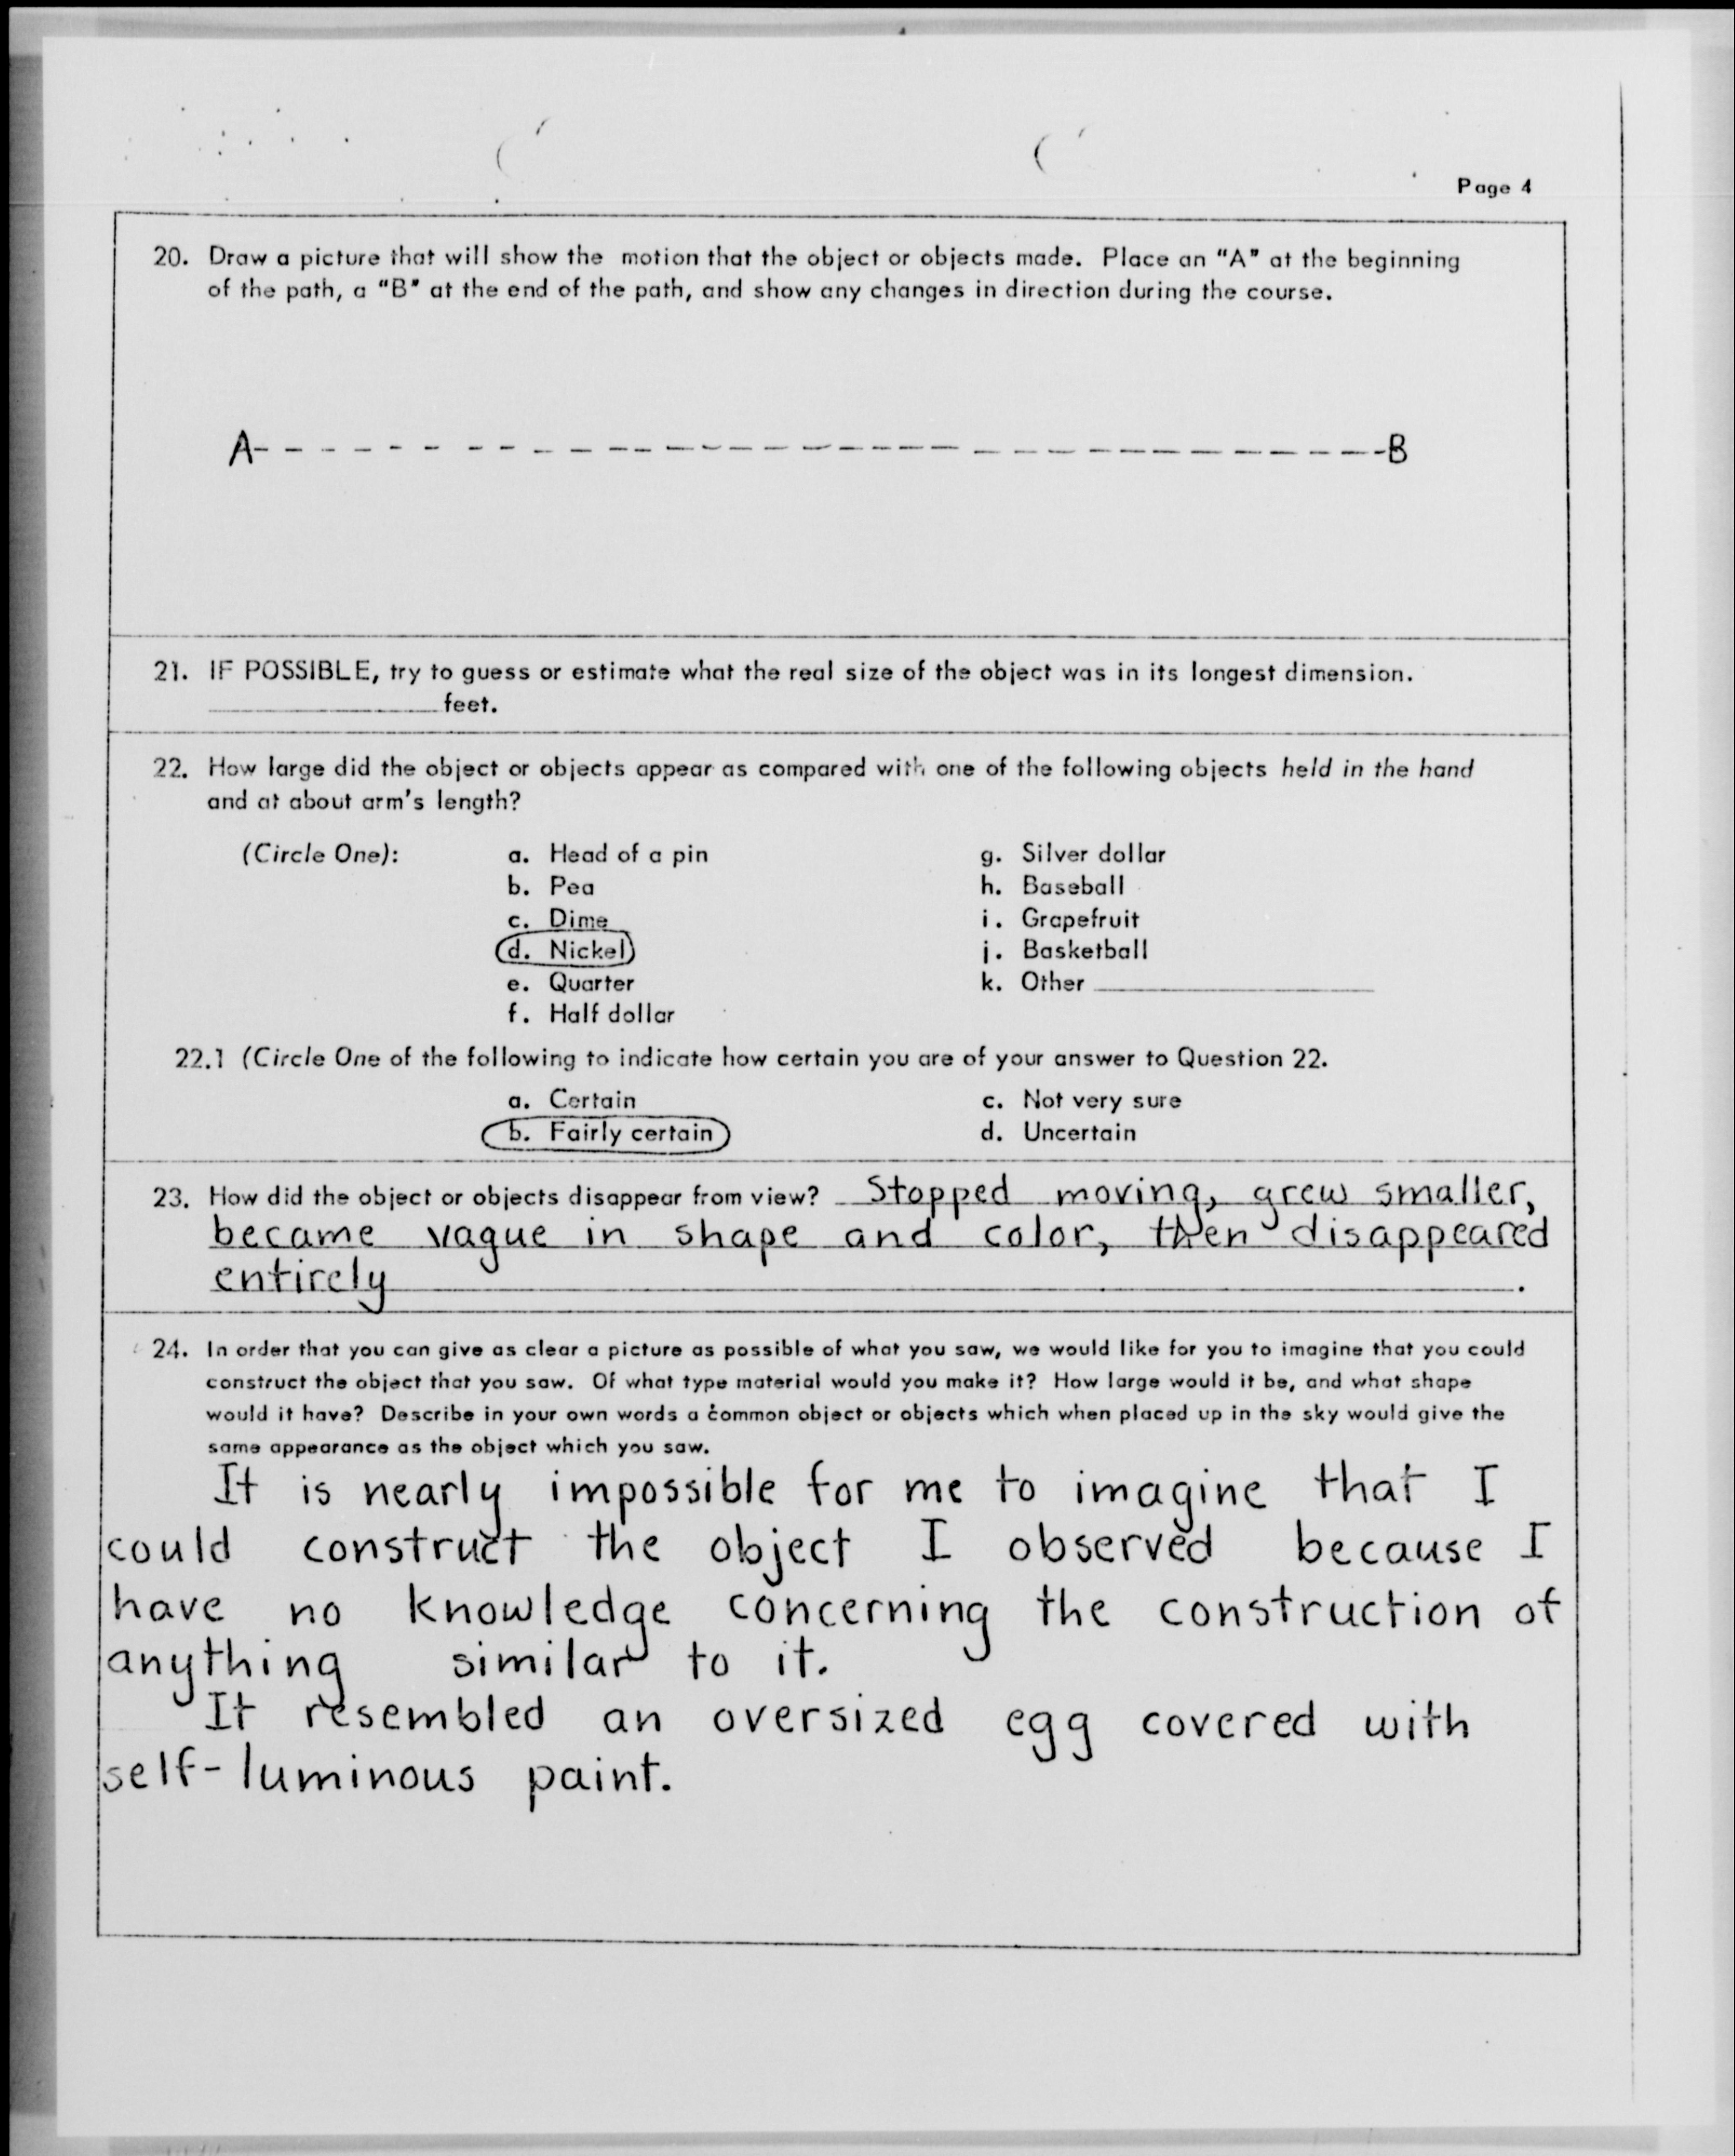 Page 4
20. Draw a picture that will show the motion that the object or objects made. Place an "A" at the beginning
of the path, a "B" at the end of the path, and show any changes in direction during the course.
A B
21. IF POSSIBLE, try to guess or estimate what the real size of the object was in its longest dimension.
feet.
22. How large did the object or objects appear as compared with one of the following objects held in the hand
and at about arm's length?
(Circle One): a. Head of a pin g. Silver dollar
b. Pea h. Baseball
c. Dime i. Grapefruit
d. Nickel j. Basketball
e. Quarter k. Other
f. Half dollar
22.1 (Circle One of the following to indicate how certain you are of your answer to Question 22.
a. Certain c. Not very sure
b. Fairly certain d. Uncertain
23. How did the object or objects disappear from view? Stopped moving, grew smaller,
became vague in shape and color, then disappeared
entirely .
24. In order that you can give as clear a picture as possible of what you saw, we would like for you to imagine that you could
construct the object that you saw. Of what type material would you make it? How large would it be, and what shape
would it have? Describe in your own words a common object or objects which when placed up in the sky would give the
same appearance as the object which you saw.
It is nearly impossible for me to imagine that I
could construct the object I observed because I
have no knowledge concerning the construction of
anything similar to it.
It resembled an oversized egg covered with
self-luminous paint.